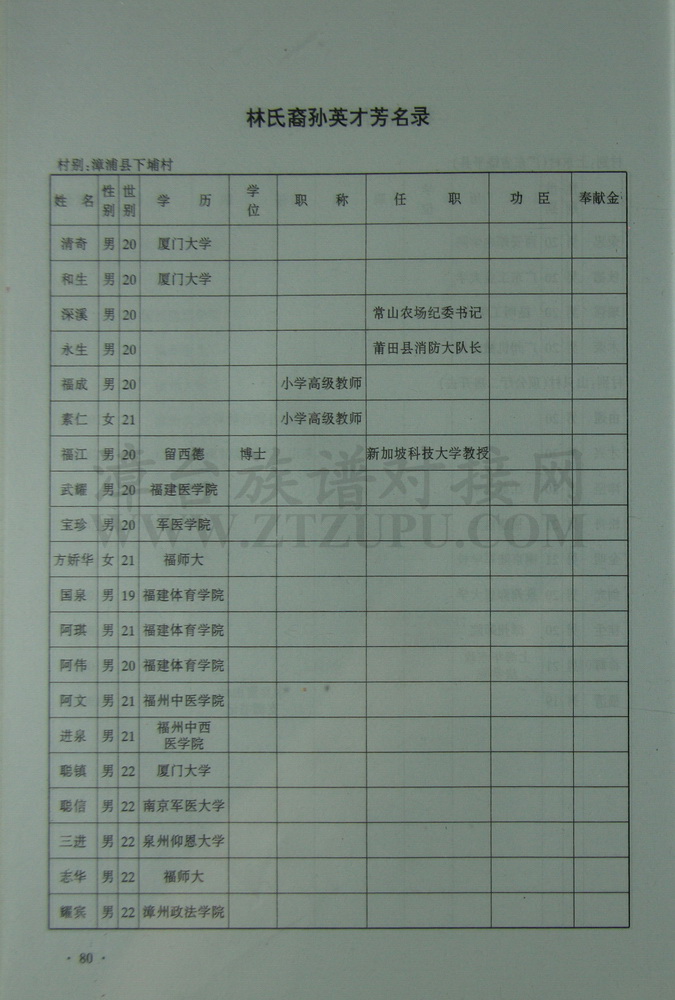 林氏裔孙英才芳名录
村别:漳浦县下埔村
姓 名 性别 世别 学 历 学位 职 称 任 职 功 臣 奉献金
清奇 男 20 厦门大学
和生 男 20 厦门大学
深溪 男 20 常山农场纪委书记
永生 男 20 莆田县消防大队长
福成 男 20 小学高级教师
素仁 女 21 小学高级教师
福江 男 20 留西德 博士 新加坡科技大学教授
武耀 男 20 福建医学院
宝珍 男 20 军医学院
方娇华 女 21 福师大
国泉 男 19 福建体育学院
阿琪 男 21 福建体育学院
阿伟 男 20 福建体育学院
阿文 男 21 福州中医学院
进泉 男 21 福州中西
医学院
聪镇 男 22 厦门大学
聪信 男 22 南京军医大学
三进 男 22 泉州仰恩大学
志华 男 22 福师大
耀宾 男 22 漳州政法学院
· 80 ·
漳台族谱对接网
WWW.ZTZUPU.COM